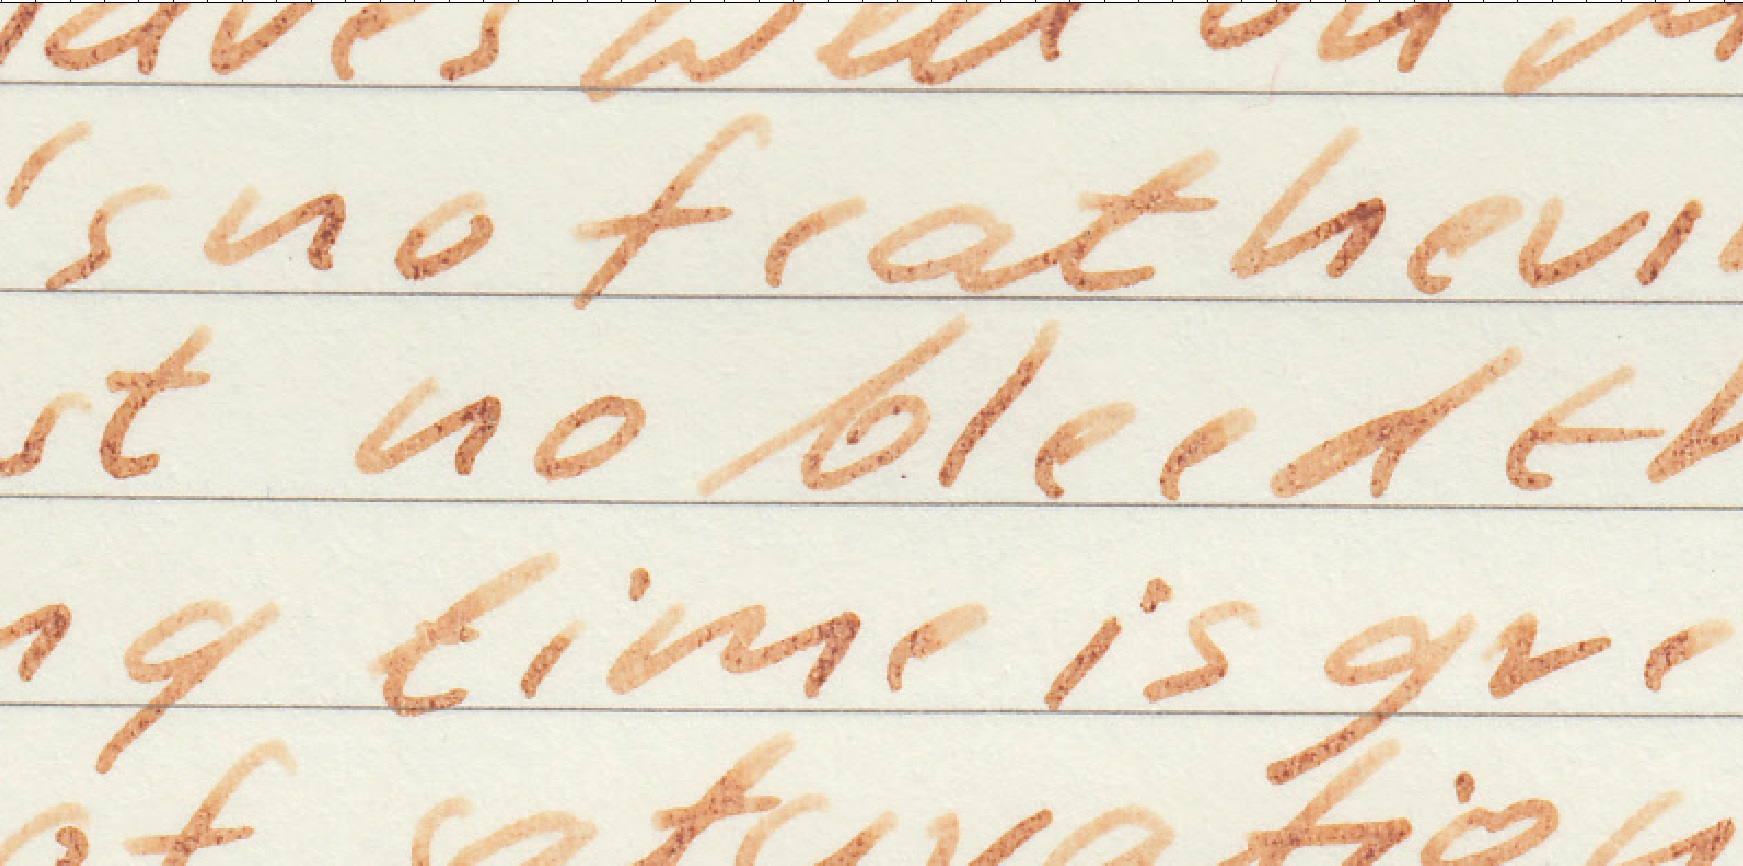 well
's no feathering
st no bleed th
ng time is gre
of saturation